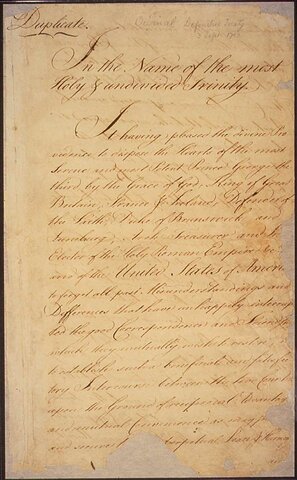 Duplicate.
Original Definitive Treaty
3 Sept. 1783
In the Name of the most
Holy & undivided Trinity.
It having pleased the divine Pro
vidence to dispose the Hearts of the most
Serene and most Potent Prince George the
third, by the Grace of God, King of Great
Britain, France & Ireland, Defender of
the Faith, Duke of Brunswick and
Lunebourg, Arch Treasurer and Prince
Elector of the Holy Roman Empire &c.
and of the United States of America
to forget all past Misunderstandings and
Differences that have unhappily interrup
ted the good Correspondence and Friendship
which they mutually wish to restore;
to establish such a beneficial and satisfac
tory Intercourse between the two Countries
upon the Ground of reciprocal Advantages
and mutual Convenience as may
and secure perpetual Peace & Harmony